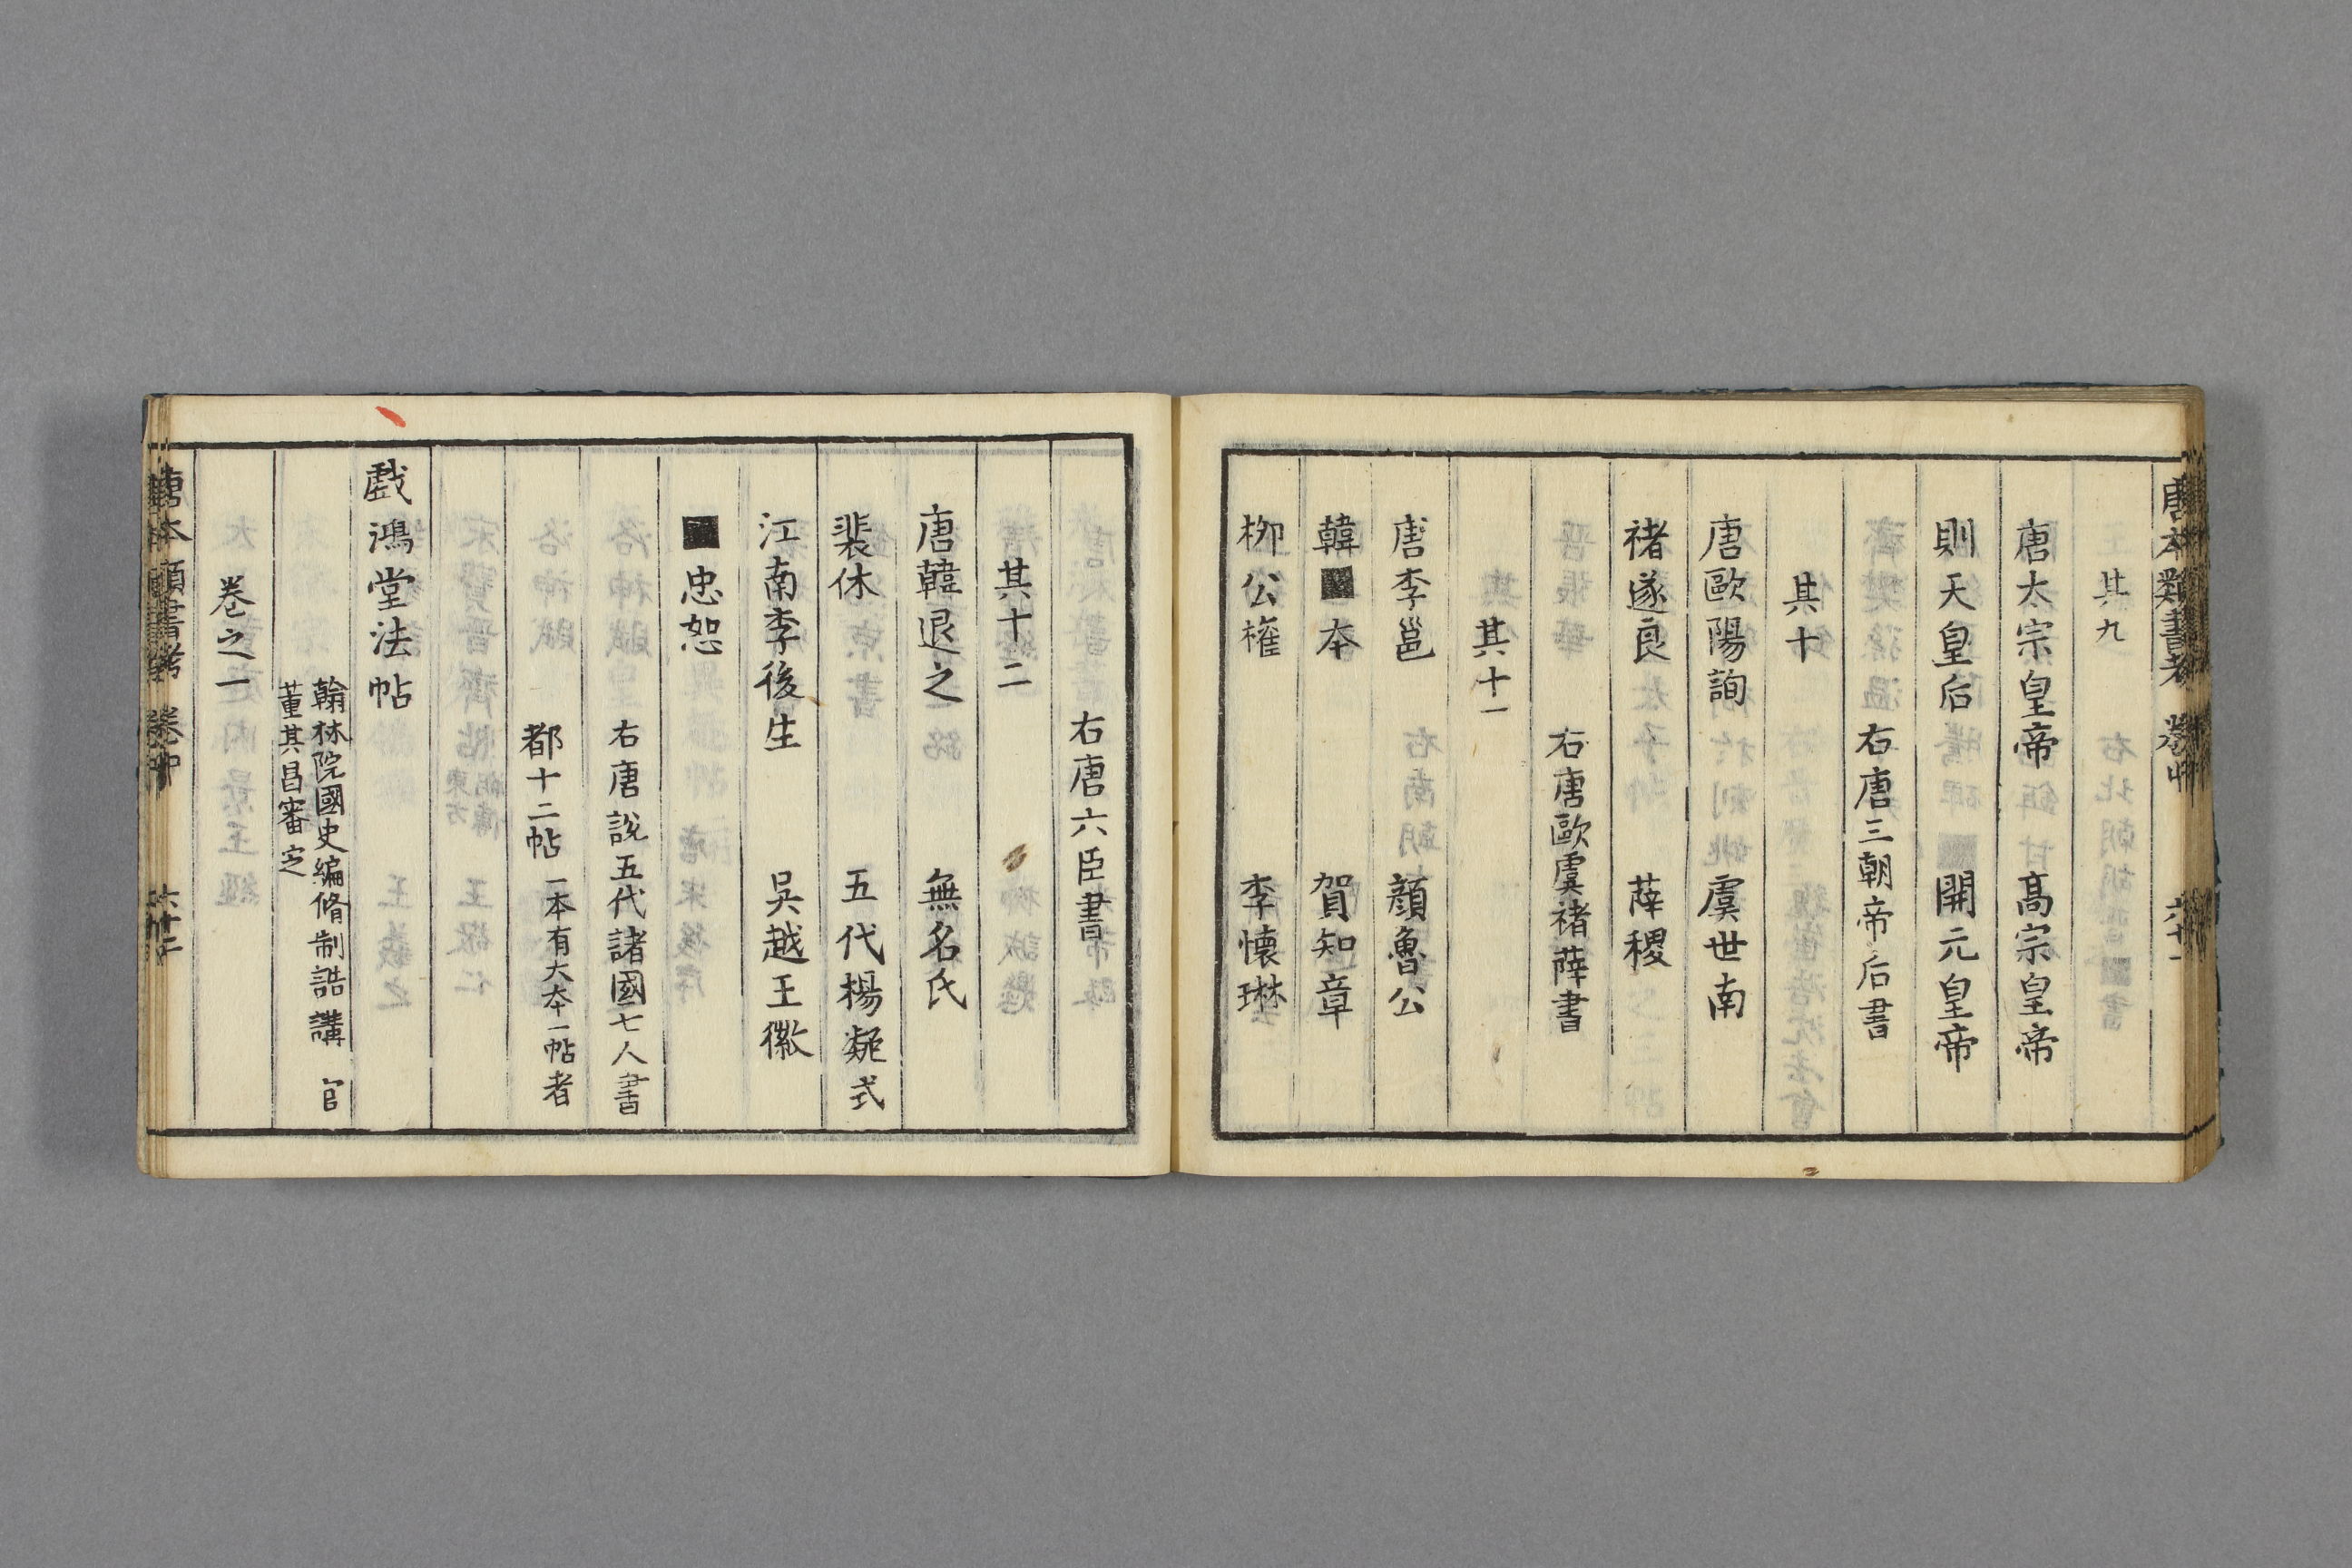 唐本類書考 卷中 六十一
其九
唐太宗皇帝 高宗皇帝
則天皇后 開元皇帝
右唐三朝帝后書
其十
唐歐陽詢 虞世南
褚遂良 薛稷
右唐歐虞褚薛書
其十一
唐李邕 顔魯公
韓■本 賀知章
柳公權 李懷琳
右唐六臣書
其十二
唐韓退之 無名氏
裴休 五代楊凝式
江南李後生 吳越王徽
■忠恕
右唐說五代諸國七人書
都十二帖 一本有大本一帖者
戲鴻堂法帖
翰林院國史編脩制誥講 官
董其昌審定
卷之一
唐本類書考 卷中 六十二